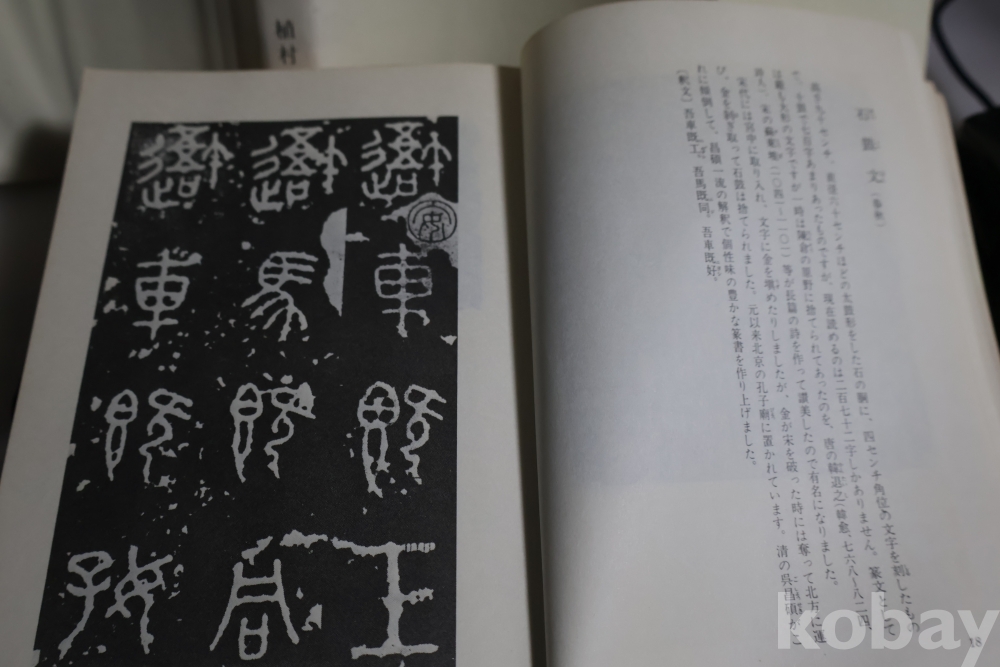 石鼓文(春秋)
高さ九十センチ、直径六十センチほどの太鼓形をした石の胴に、四センチ角位の文字を刻したもの
で、十個で七百字あまりあったものですが、現在読めるのは二百七十二字しかありません。篆文として
は最も古形の文字ですが一時は陳倉の原野に捨てられてあったのを、唐の韓退之(韓愈、七六八—八二四)
蘇東坡(一〇三一—一一〇一)等が長篇の詩を作って讃美したので有名になりました。
宋代には宮中に取り入れ、文字に金を塡めたりしましたが、金が宋を破った時には奪って北方に運
び、金を剝ぎ取って石鼓は捨てられました。元以来北京の孔子廟に置かれています。清の呉昌碩がこ
れに傾倒して、昌碩一流の解釈で個性味の豊かな篆書を作り上げました。
〔釈文〕吾車既工。吾馬既同。吾車既好。
18
植村
避車既工
避馬既同
避車既好
安
kobay